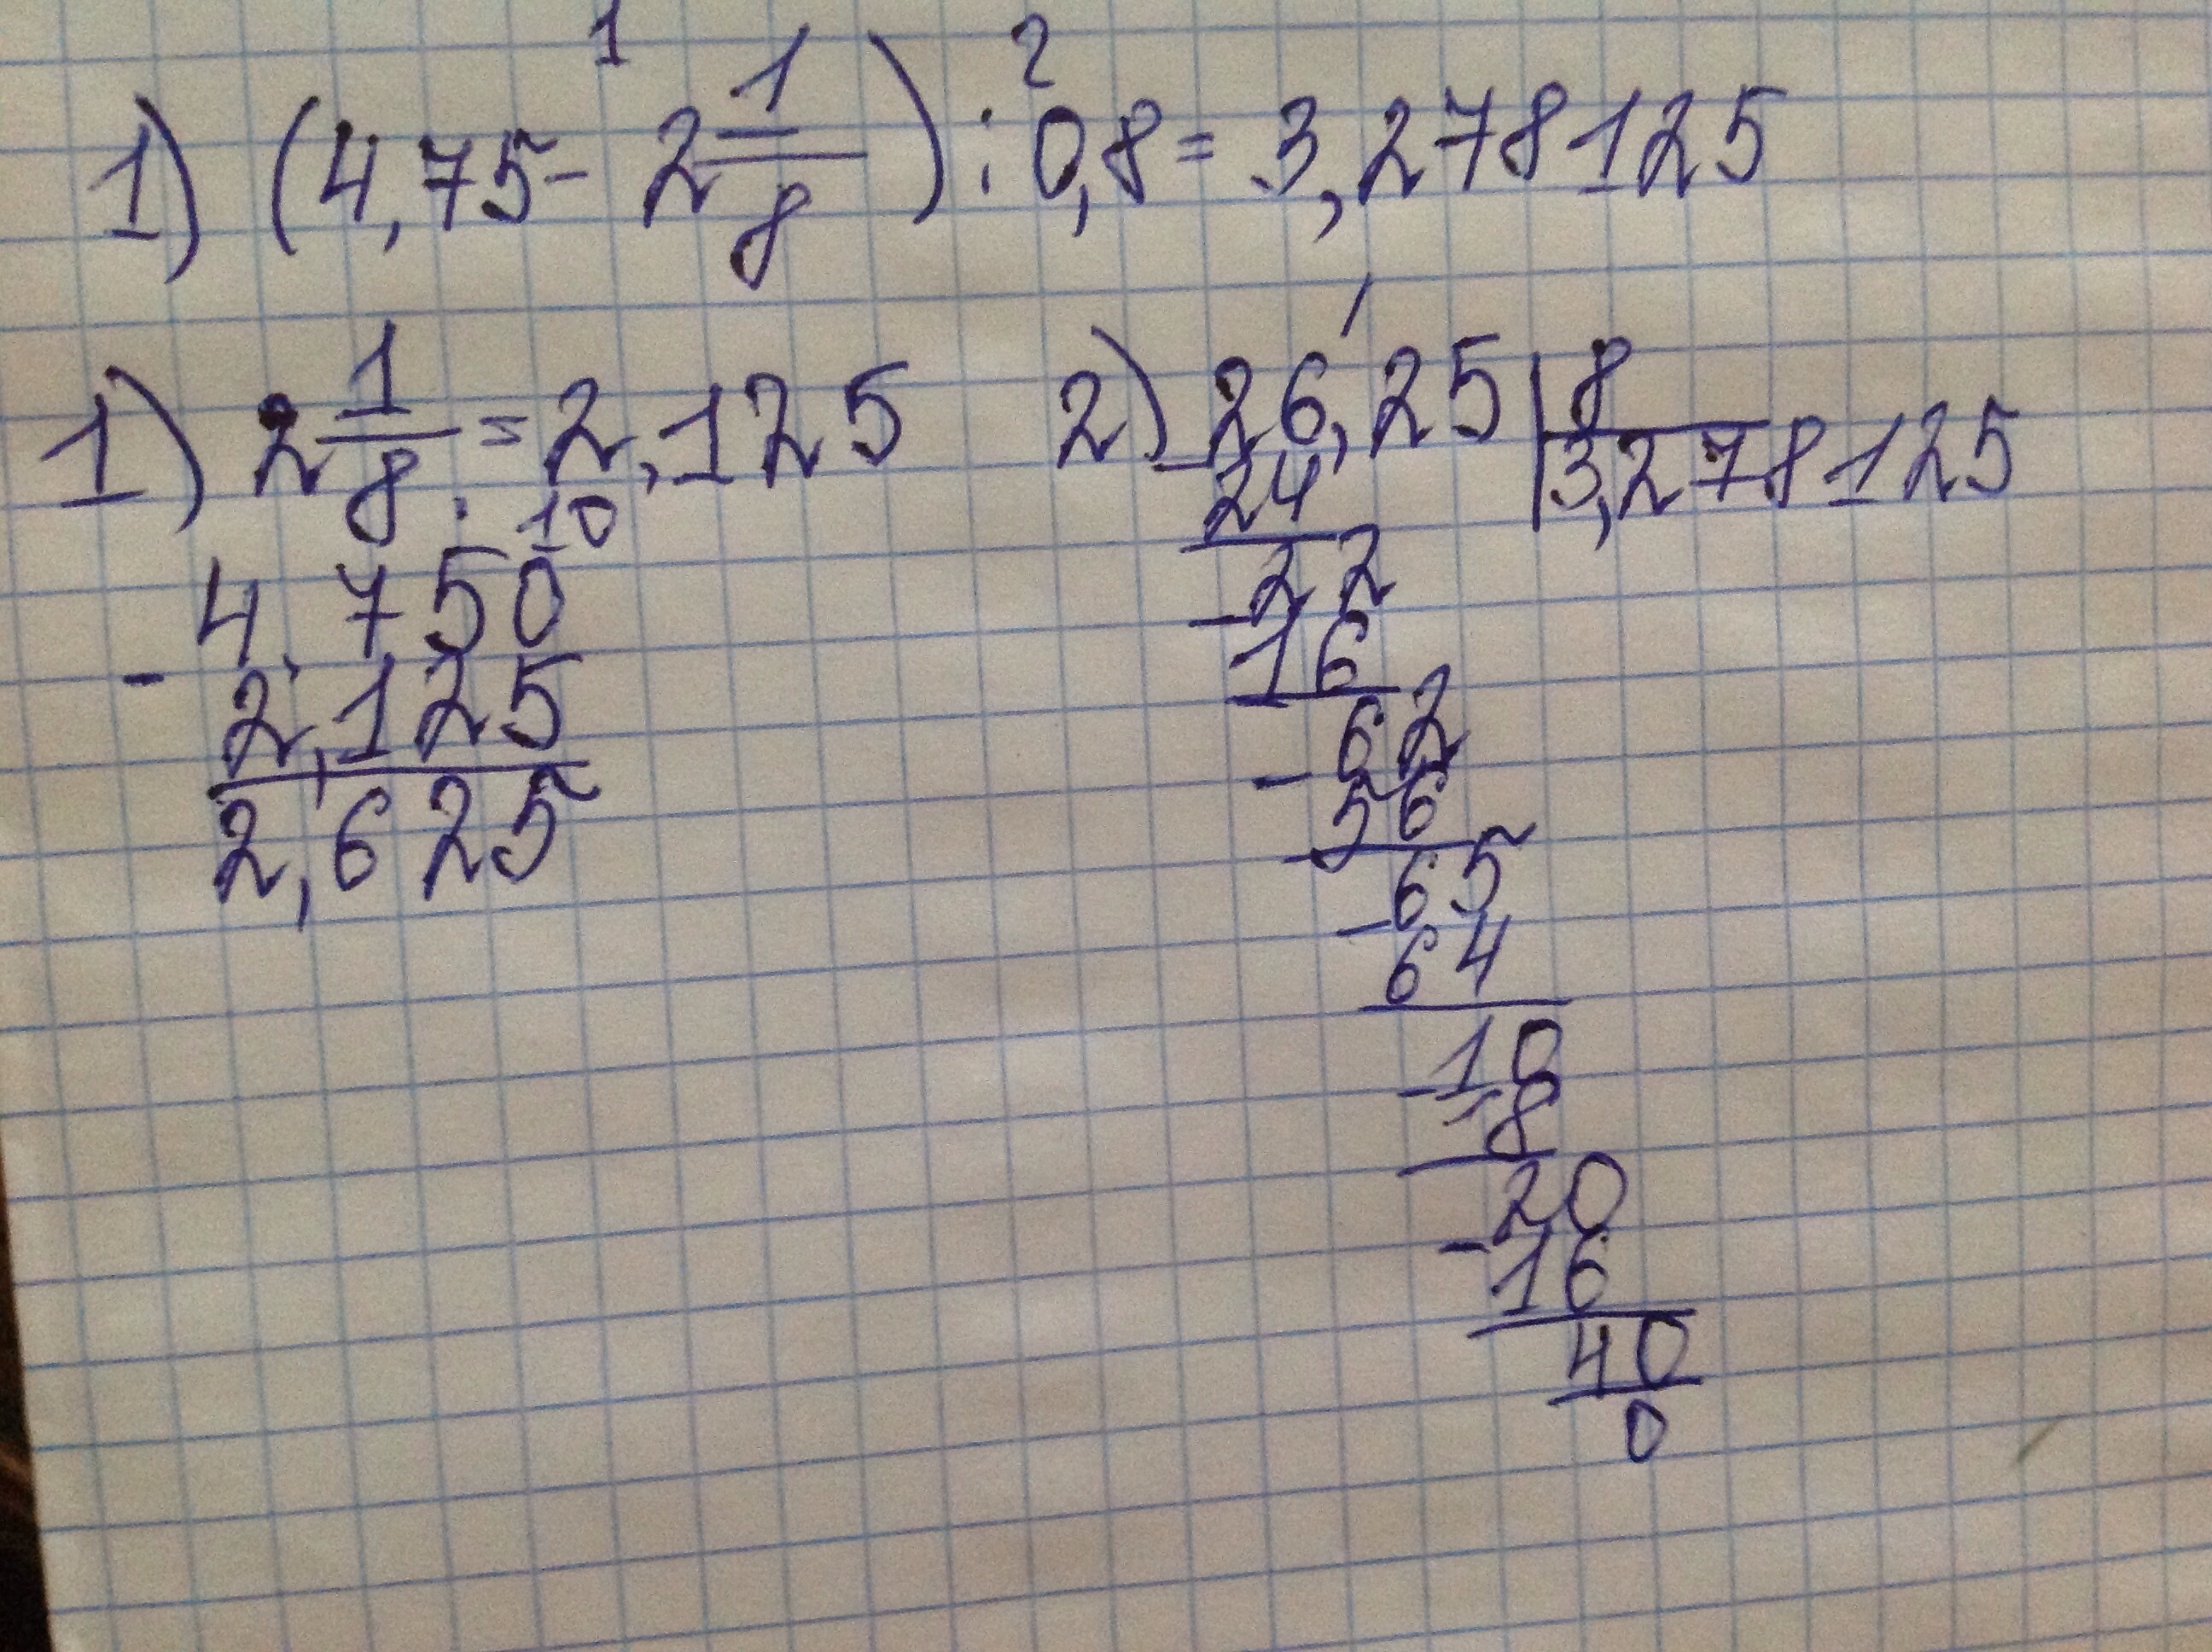 1 2
1) (4,75 - 2 1/8) : 0,8 = 3,278125
1) 2 1/8 = 2,125
10
4,750
- 2,125
2,625
2) 26,25 | 8
3,278125
- 24
22
- 16
62
- 56
65
- 64
10
- 8
20
- 16
40
0